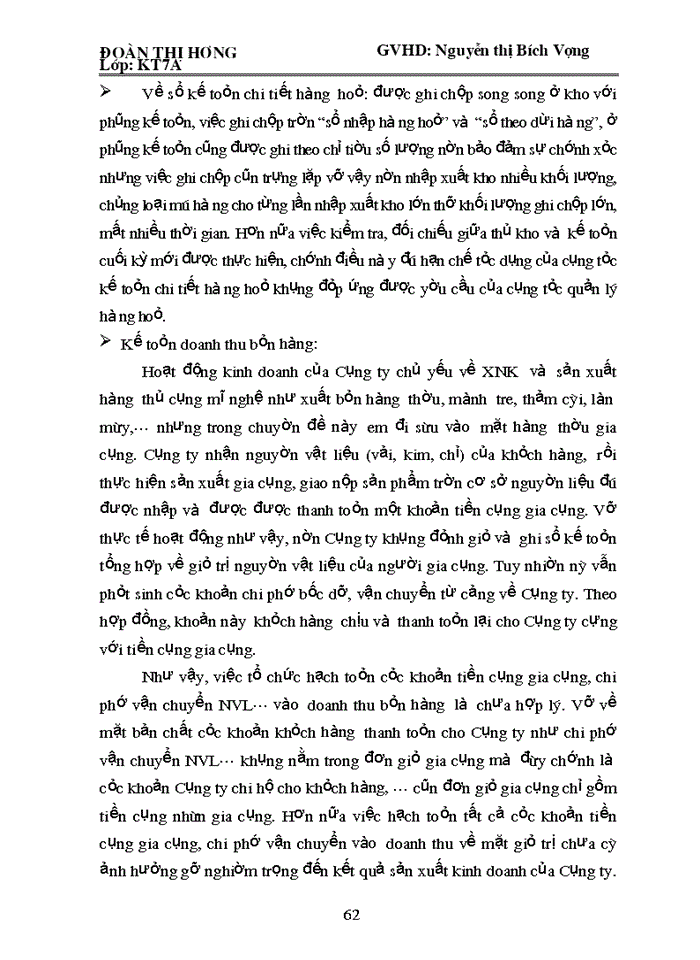 ĐOÀN THI HƠNG GVHD: Nguyễn thị Bích Vọng
Lớp: KT7A
➢ Về sổ kế toỏn chi tiết hàng hoỏ: được ghi chộp song song ở kho với
phũng kế toỏn, việc ghi chộp trờn “sổ nhập hàng hoở” và “sổ theo dừi hàng”, ở
phũng kế toỏn cũng được ghi theo chỉ tiờu số lượng nờn bảo đảm sự chớnh xỏc
nhưng việc ghi chộp cũn trựng lặp vỡ vậy nờn nhập xuất kho nhiều khối lượng,
chủng loại mú hàng cho từng lần nhập xuất kho lớn thỡ khối lượng ghi chộp lớn,
mất nhiều thời gian. Hơn nữa việc kiểm tra, đối chiếu giữa thủ kho và kế toỏn
cuối kỳ mới được thực hiện, chớnh điều này đú hạn chế tỏc dụng của cụng tỏc
kế toỏn chi tiết hàng hoỏ khụng đỏp ứng được yờu cầu của cụng tỏc quản lý
hàng hoỏ.
➢ Kế toỏn doanh thu bỏn hàng:
Hoạt động kinh doanh của Cụng ty chủ yếu về XNK và sản xuất
hàng thủ cụng mĩ nghệ như xuất bỏn hàng thờu, mành tre, thảm cỳi, làn
mừy,… nhưng trong chuyờn đề này em đi sừu vào mặt hàng thờu gia
cụng. Cụng ty nhận nguyờn vật liệu (vải, kim, chỉ) của khỏch hàng, rồi
thực hiện sản xuất gia cụng, giao nộp sản phẩm trờn cơ sở nguyờn liệu đú
được nhập và được được thanh toỏn một khoản tiền cụng gia cụng. Vỡ
thực tế hoạt động như vậy, nờn Cụng ty khụng đỏnh giỏ và ghi sổ kế toỏn
tổng hợp về giỏ trị nguyờn vật liệu của người gia cụng. Tuy nhiờn nỳ vẫn
phỏt sinh cỏc khoản chi phớ bốc dỡ, vận chuyển từ cảng về Cụng ty. Theo
hợp đồng, khoản này khỏch hàng chịu và thanh toỏn lại cho Cụng ty cựng
với tiền cụng gia cụng.
Như vậy, việc tổ chức hạch toỏn cỏc khoản tiền cụng gia cụng, chi
phớ vận chuyển NVL… vào doanh thu bỏn hàng là chưa hợp lý. Vỡ về
mặt bản chất cỏc khoản khỏch hàng thanh toỏn cho Cụng ty như chi phớ
vận chuyển NVL… khụng nằm trong đơn giỏ gia cụng mà đừy chớnh là
cỏc khoản Cụng ty chi hộ cho khỏch hàng, … cũn đơn giỏ gia cụng chỉ gồm
tiền cụng nhừn gia cụng. Hơn nữa việc hạch toỏn tất cả cỏc khoản tiền
cụng gia cụng, chi phớ vận chuyển vào doanh thu về mặt giỏ trị chưa cỳ
ảnh hưởng gỡ nghiờm trọng đến kết quả sản xuất kinh doanh của Cụng ty.
62